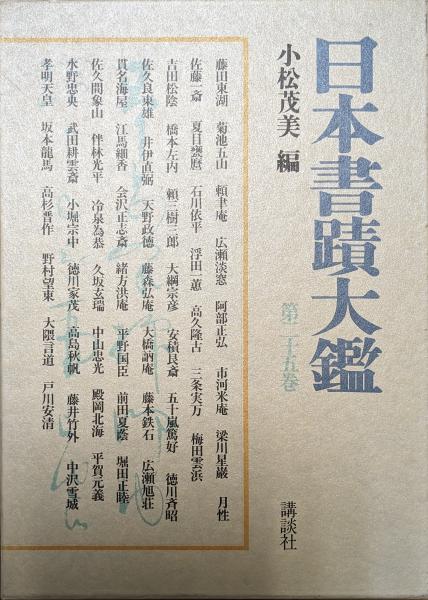 日本書蹟大鑑
第二十五巻
小松茂美 編
講談社
藤田東湖 菊池五山 頼聿庵 広瀬淡窓 阿部正弘 市河米庵 梁川星巌 月性
佐藤一斎 夏目甕麿 石川依平 浮田一蕙 高久隆古 三条実万 梅田雲浜
吉田松陰 橋本左内 頼三樹三郎 大綱宗彦 安積艮斎 五十嵐篤好 徳川斉昭
佐久良東雄 井伊直弼 天野政徳 藤森弘庵 大橋訥庵 藤本鉄石 広瀬旭荘
貫名海屋 江馬細香 会沢正志斎 緒方洪庵 平野国臣 前田夏蔭 堀田正睦
佐久間象山 伴林光平 冷泉為恭 久坂玄瑞 中山忠光 殿岡北海 平賀元義
水野忠央 武田耕雲斎 小堀宗中 徳川家茂 高島秋帆 藤井竹外 中沢雪城
孝明天皇 坂本龍馬 高杉晋作 野村望東 大隈言道 戸川安清